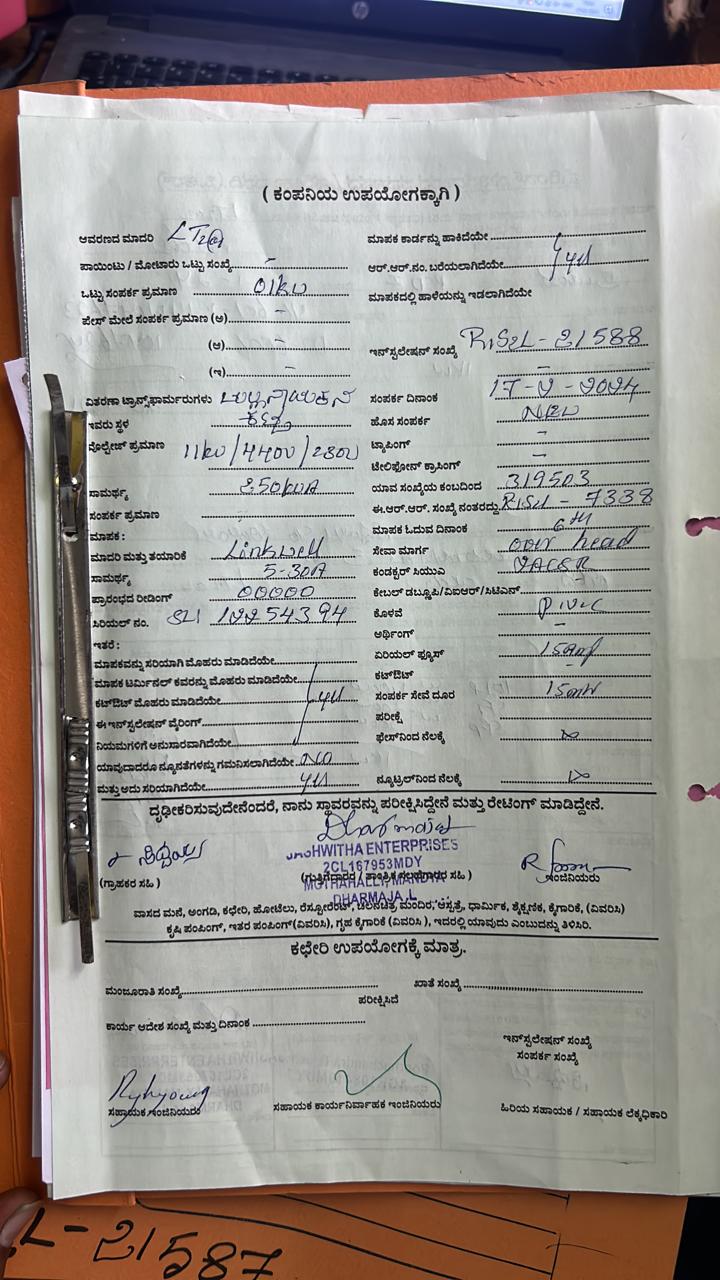 ( ಕಂಪನಿಯ ಉಪಯೋಗಕ್ಕಾಗಿ )
ಆವರಣದ ಮಾದರಿ
ಪಾಯಿಂಟು / ಮೋಟಾರು ಒಟ್ಟು ಸಂಖ್ಯೆ -
ಒಟ್ಟು ಸಂಪರ್ಕ ಪ್ರಮಾಣ 01kw
ಪೇಸ್ ಮೇಲೆ ಸಂಪರ್ಕ ಪ್ರಮಾಣ (ಅ) -
(ಆ) -
(ಇ) -
ವಿತರಣಾ ಟ್ರಾನ್ಸ್‌ಫಾರ್ಮರುಗಳು
ಇವರು ಸ್ಥಳ
ವೊಲ್ಟೇಜ್ ಪ್ರಮಾಣ 11kv/440v/230v
ಸಾಮರ್ಥ್ಯ 250kVA
ಸಂಪರ್ಕ ಪ್ರಮಾಣ -
ಮಾಪಕ :
ಮಾದರಿ ಮತ್ತು ತಯಾರಿಕೆ Linkwell
ಸಾಮರ್ಥ್ಯ 5-30A
ಪ್ರಾರಂಭದ ರೀಡಿಂಗ್ 00000
ಸಿರಿಯಲ್ ನಂ.
ಇತರೆ :
ಮಾಪಕವನ್ನು ಸರಿಯಾಗಿ ಮೊಹರು ಮಾಡಿದೆಯೇ
ಮಾಪಕ ಟರ್ಮಿನಲ್ ಕವರನ್ನು ಮೊಹರು ಮಾಡಿದೆಯೇ
ಕಟ್‌ಔಟ್ ಮೊಹರು ಮಾಡಿದೆಯೇ yes
ಈ ಇನ್‌ಸ್ಪಲೇಷನ್ ವೈರಿಂಗ್
ನಿಯಮಗಳಿಗೆ ಅನುಸಾರವಾಗಿದೆಯೇ
ಯಾವುದಾದರೂ ನ್ಯೂನತೆಗಳನ್ನು ಗಮನಿಸಲಾಗಿದೆಯೇ NO
ಮತ್ತು ಅದು ಸರಿಯಾಗಿದೆಯೇ yes
ಮಾಪಕ ಕಾರ್ಡನ್ನು ಹಾಕಿದೆಯೇ
ಆರ್.ಆರ್.ನಂ. ಬರೆಯಲಾಗಿದೆಯೇ yes
ಮಾಪಕದಲ್ಲಿ ಹಾಳೆಯನ್ನು ಇಡಲಾಗಿದೆಯೇ
ಇನ್‌ಸ್ಪಲೇಷನ್ ಸಂಖ್ಯೆ RISL-21588
-
ಸಂಪರ್ಕ ದಿನಾಂಕ
ಹೊಸ ಸಂಪರ್ಕ NEW
ಟ್ಯಾಪಿಂಗ್ -
ಟೆಲಿಫೋನ್ ಕ್ರಾಸಿಂಗ್ -
ಯಾವ ಸಂಖ್ಯೆಯ ಕಂಬದಿಂದ 319503
ಈ.ಆರ್.ಆರ್. ಸಂಖ್ಯೆ ನಂತರದ್ದು RISL - 7338
ಮಾಪಕ ಓದುವ ದಿನಾಂಕ 6th
ಸೇವಾ ಮಾರ್ಗ over head
ಕಂಡಕ್ಟರ್ ಸಿಯುಎ
ಕೇಬಲ್ ಡಬ್ಲೂಪಿ/ಎಐಆರ್/ಸಿಟಿಎನ್
ಕೊಳವೆ P.V.C
ಅರ್ಥಿಂಗ್ -
ಏರಿಯಲ್ ಫ್ಯೂಸ್ 15amp
ಕಟ್‌ಔಟ್ -
ಸಂಪರ್ಕ ಸೇವೆ ದೂರ 15mtr
ಪರೀಕ್ಷೆ
ಫೇಸ್‌ನಿಂದ ನೆಲಕ್ಕೆ ∞
ನ್ಯೂಟ್ರಲ್‌ನಿಂದ ನೆಲಕ್ಕೆ
ದೃಢೀಕರಿಸುವುದೇನೆಂದರೆ, ನಾನು ಸ್ಥಾವರವನ್ನು ಪರೀಕ್ಷಿಸಿದ್ದೇನೆ ಮತ್ತು ರೇಟಿಂಗ್ ಮಾಡಿದ್ದೇನೆ.
JASHWITHA ENTERPRISES
2CL167953MDY
(ಗ್ರಾಹಕರ ಸಹಿ ) (ಗುತ್ತಿಗೆದಾರರ / ತಾಂತ್ರಿಕ ಸಲಹೆಗಾರರ ಸಹಿ ) ಇಂಜಿನಿಯರು
MOTHAHALLI, MANDYA
DHARMAJA.L
ವಾಸದ ಮನೆ, ಅಂಗಡಿ, ಕಛೇರಿ, ಹೋಟೆಲು, ರೆಸ್ಟೋರೆಂಟ್, ಚಲನಚಿತ್ರ ಮಂದಿರ, ಆಸ್ಪತ್ರೆ, ಧಾರ್ಮಿಕ, ಶೈಕ್ಷಣಿಕ, ಕೈಗಾರಿಕೆ, (ವಿವರಿಸಿ)
ಕೃಷಿ ಪಂಪಿಂಗ್, ಇತರ ಪಂಪಿಂಗ್(ವಿವರಿಸಿ), ಗೃಹ ಕೈಗಾರಿಕೆ (ವಿವರಿಸಿ ), ಇದರಲ್ಲಿ ಯಾವುದು ಎಂಬುದನ್ನು ತಿಳಿಸಿರಿ.
ಕಛೇರಿ ಉಪಯೋಗಕ್ಕೆ ಮಾತ್ರ.
ಮಂಜೂರಾತಿ ಸಂಖ್ಯೆ ಖಾತೆ ಸಂಖ್ಯೆ
ಪರೀಕ್ಷಿಸಿದೆ
ಕಾರ್ಯ ಆದೇಶ ಸಂಖ್ಯೆ ಮತ್ತು ದಿನಾಂಕ
ಇನ್‌ಸ್ಪಲೇಷನ್ ಸಂಖ್ಯೆ
ಸಂಪರ್ಕ ಸಂಖ್ಯೆ
ಸಹಾಯಕ ಇಂಜಿನಿಯರು ಸಹಾಯಕ ಕಾರ್ಯನಿರ್ವಾಹಕ ಇಂಜಿನಿಯರು ಹಿರಿಯ ಸಹಾಯಕ / ಸಹಾಯಕ ಲೆಕ್ಕಧಿಕಾರಿ
L-21587